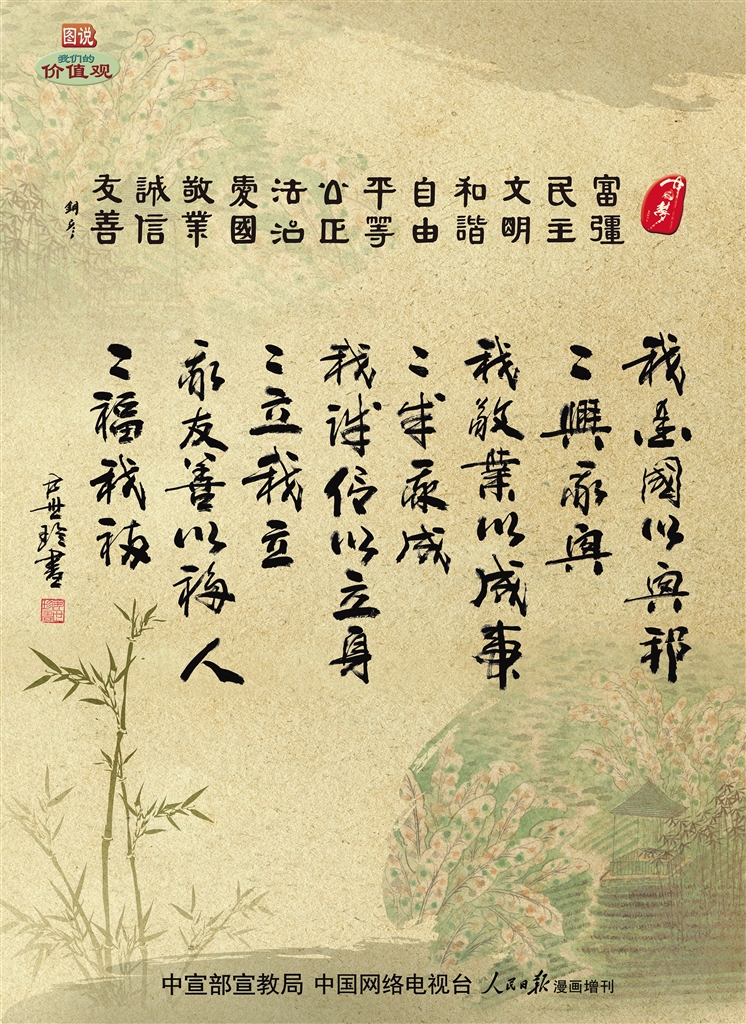 图说
我们的
价值观
中国梦
富彊
民主
文明
和諧
自由
平等
公正
法治
愛國
敬業
誠信
友善
我愛國以興邦
〻興家興
我敬業以成事
〻成家成
我诚信以立身
〻立我立
家友善以福人
〻福我福
世玲書
中宣部宣教局 中国网络电视台 人民日报 漫画增刊